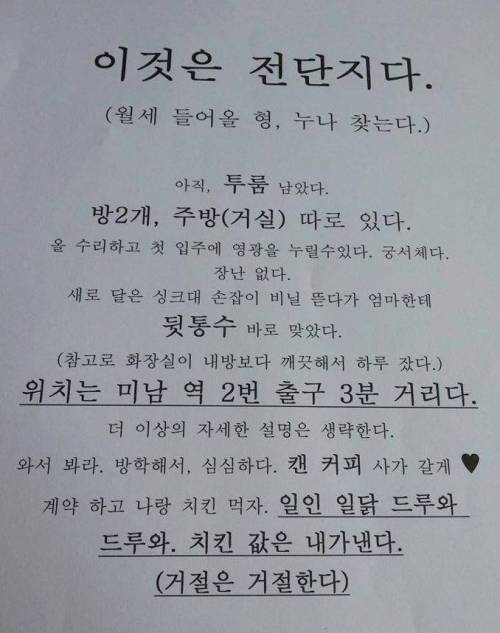 이것은 전단지다.
(월세 들어올 형, 누나 찾는다.)
아직, 투룸 남았다.
방2개, 주방(거실) 따로 있다.
올 수리하고 첫 입주에 영광을 누릴수있다. 궁서체다.
장난 없다.
새로 달은 싱크대 손잡이 비닐 뜯다가 엄마한테
뒷통수 바로 맞았다.
(참고로 화장실이 내방보다 깨끗해서 하루 잤다.)
위치는 미남 역 2번 출구 3분 거리다.
더 이상의 자세한 설명은 생략한다.
와서 봐라. 방학해서, 심심하다. 캔 커피 사가 갈게 ♥
계약 하고 나랑 치킨 먹자. 일인 일닭 드루와
드루와. 치킨 값은 내가낸다.
(거절은 거절한다)